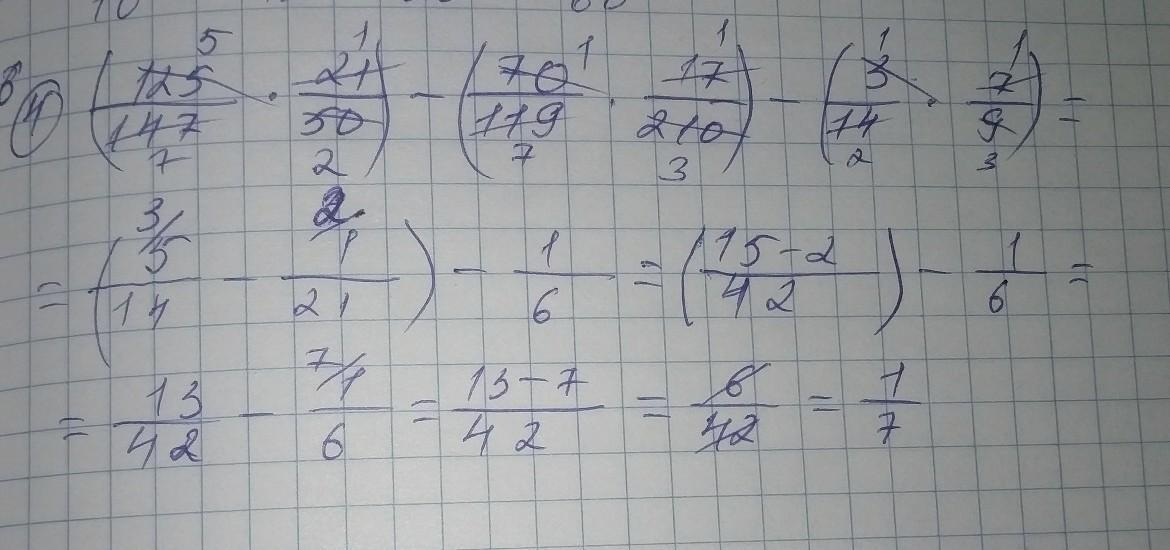 4) (125/147 · 21/50) - (70/119 · 17/210) - (3/14 · 7/9) =
= (5/14 - 1/21) - 1/6 = (15-2/42) - 1/6 =
= 13/42 - 1/6 = 13-7/42 = 6/42 = 1/7